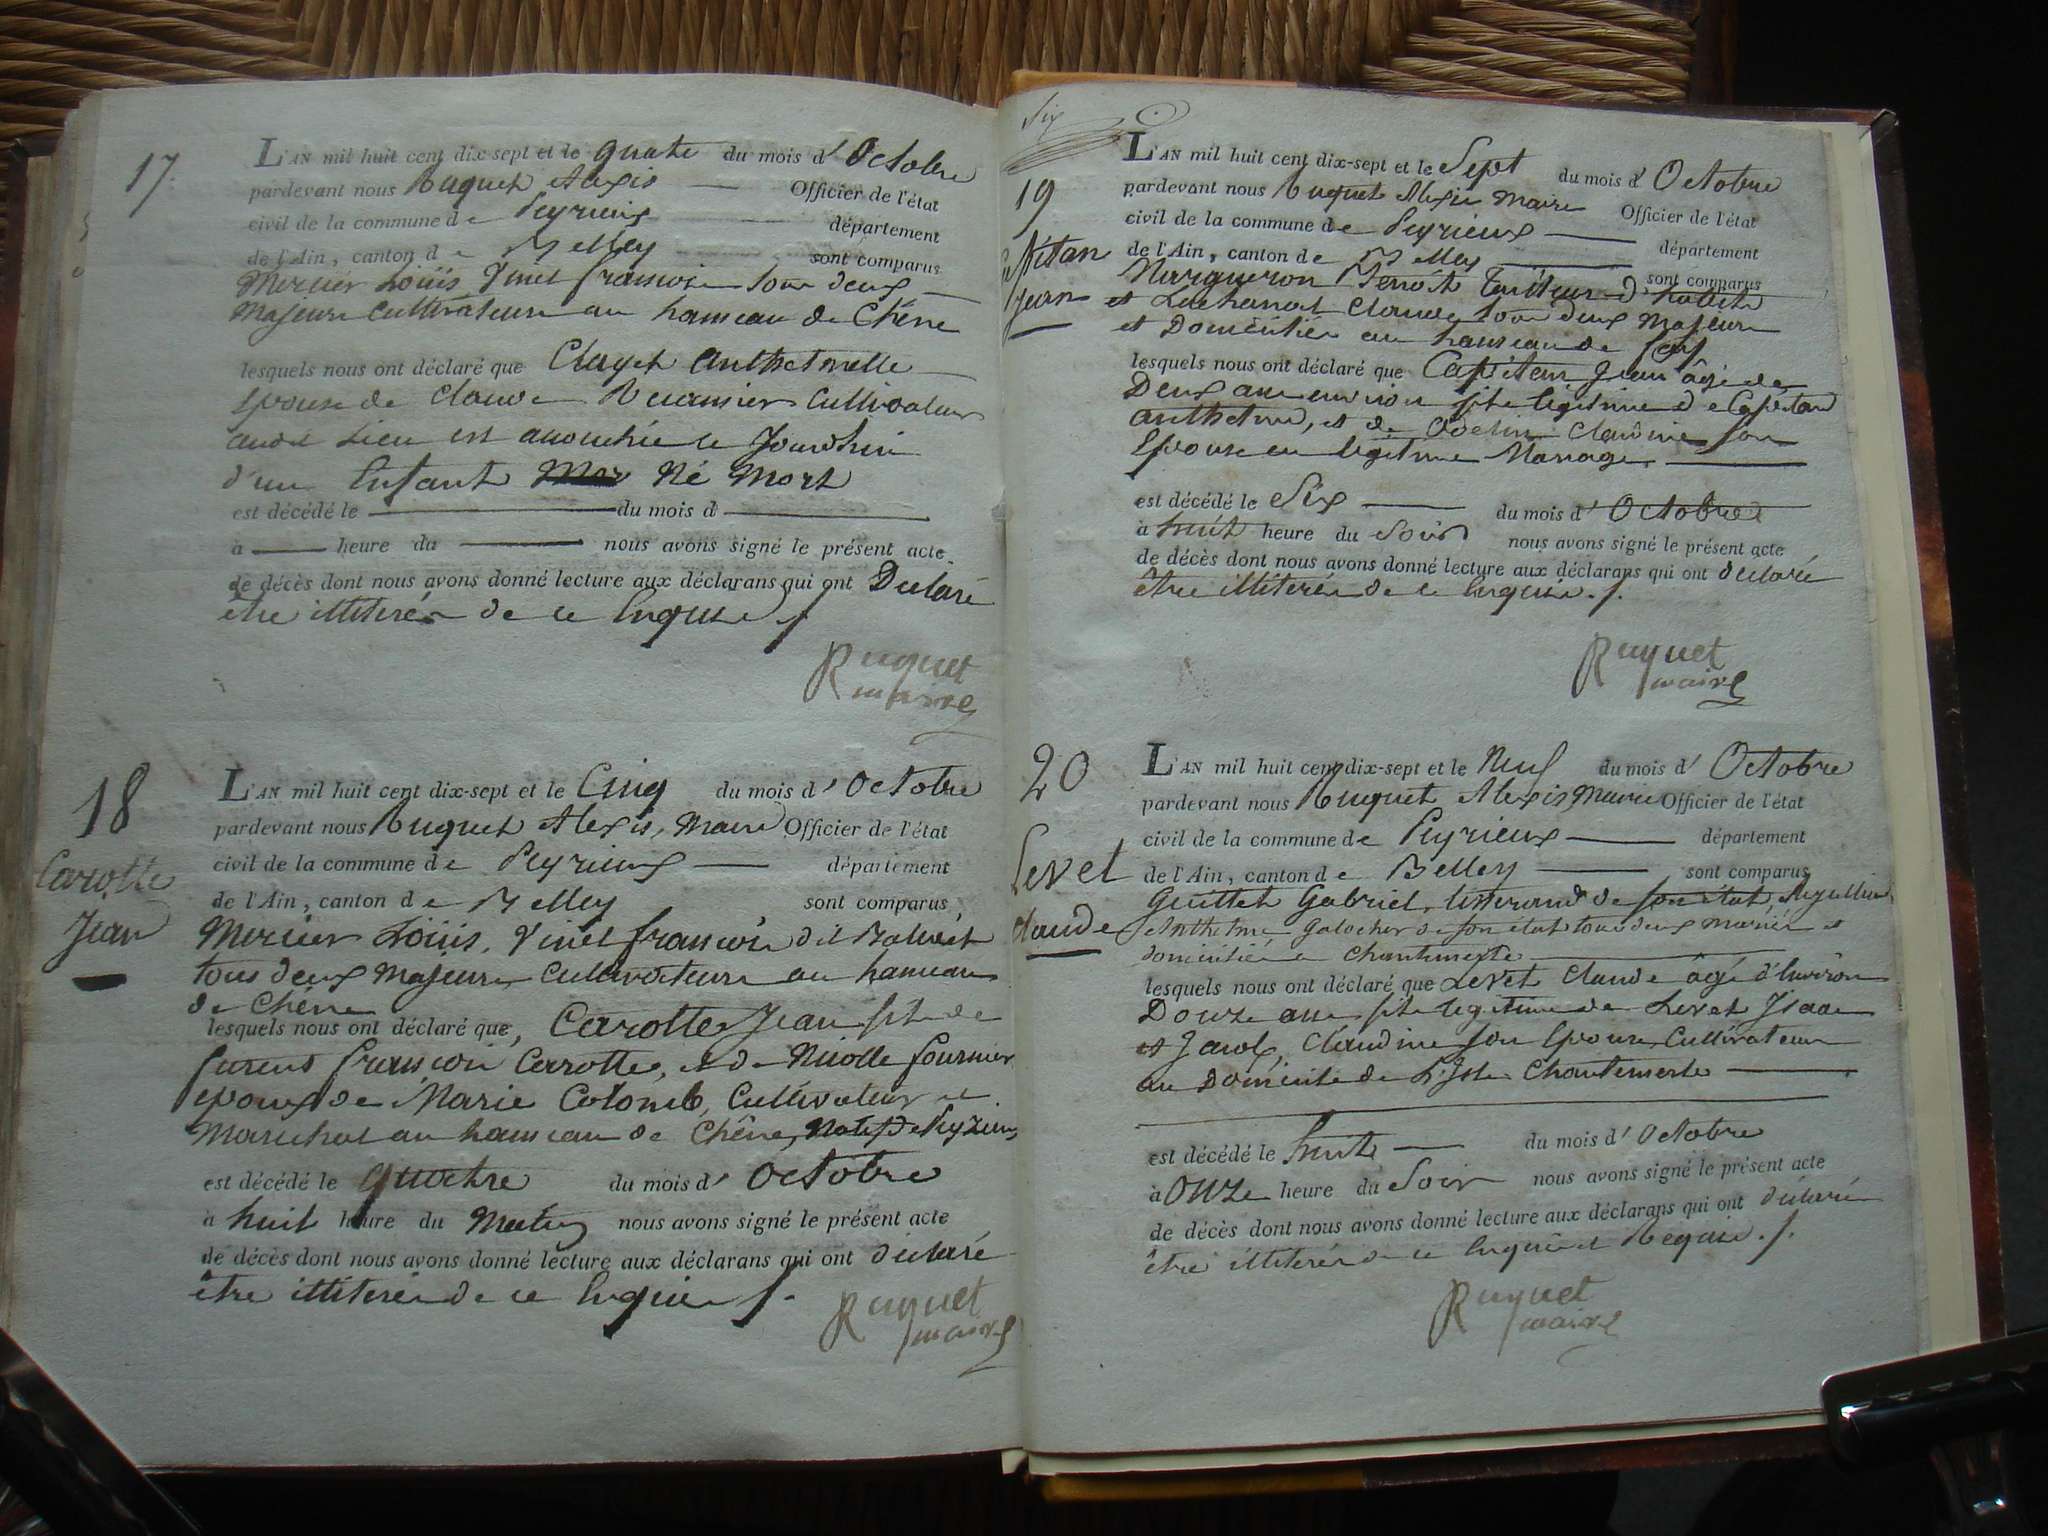 17.
L'AN mil huit cent dix-sept et le quatre du mois d'Octobre
pardevant nous Ruquet Alexis Officier de l'état
civil de la commune de Peyrieux département
de l'Ain, canton de Belley sont comparus
Mercier Loüis Vinet françois tous deux
Majeurs Cultivateurs au hameau de Chêne
lesquels nous ont déclaré que Clayet Anthelmette
Epouse de Claude Cultivateur
audit Lieu est accouchée le Jourdhui
d'un Enfant Mor Né Mort
est décédé le du mois d
à heure du nous avons signé le présent acte
de décès dont nous avons donné lecture aux déclarans qui ont Déclaré
être illiterés de ce Enquis
Ruquet
maire
18
Carotte
Jean
L'AN mil huit cent dix-sept et le Cinq du mois d'Octobre
pardevant nous Ruquet Alexis, Maire Officier de l'état
civil de la commune de Peyrieux département
de l'Ain, canton de Belley sont comparus
Mercier Loüis, Vinet françois dit
tous deux Majeurs Cultivateurs au hameau
de Chêne
lesquels nous ont déclaré que, Carotte Jean fils de
furent françois Carotte, et de Nicolle fournier
epoux de Marie Colomb, Cultivateur et
Marechal au hameau de Chêne, Natif de Peyzieux
est décédé le quatre du mois d'Octobre
à huit heure du Matin nous avons signé le présent acte
de décès dont nous avons donné lecture aux déclarans qui ont déclaré
être illiterés de ce Enquis
Ruquet
maire
Six
19
Capitan
Jean
L'AN mil huit cent dix-sept et le Sept du mois d'Octobre
pardevant nous Ruquet Alexis Maire Officier de l'état
civil de la commune de Peyrieux département
de l'Ain, canton de Belley sont comparus
Margueron Benoît Tailleur d'habits
et Claude tous deux Majeurs
et Domiciliés au hameau de
lesquels nous ont déclaré que Capitan Jean âgé de
Deux ans environ fils legitime de Capitan
Anthelme, et de Claudine son
Epouse en legitime Mariage
est décédé le Six du mois d'Octobre
à huit heure du Soir nous avons signé le présent acte
de décès dont nous avons donné lecture aux déclarans qui ont déclaré
être illiterés de ce Enquis.
Ruquet
maire
20
Levet
Claude
L'AN mil huit cent dix-sept et le Neuf du mois d'Octobre
pardevant nous Ruquet Alexis, Maire Officier de l'état
civil de la commune de Peyrieux département
de l'Ain, canton de Belley sont comparus
Guillet Gabriel, tisserand de son état,
Anthelme Galocher de son état tous deux mariés et
domiciliés a Chantemerle
lesquels nous ont déclaré que Levet Claude âgé d'Environ
Douze ans fils legitime de Levet Isaac
et Claudine son Epouse, Cultivateurs
au Domicile de Chantemerle
est décédé le huit du mois d'Octobre
à Onze heure du Soir nous avons signé le présent acte
de décès dont nous avons donné lecture aux déclarans qui ont déclaré
être illiterés de ce Enquis et Requis.
Ruquet
maire